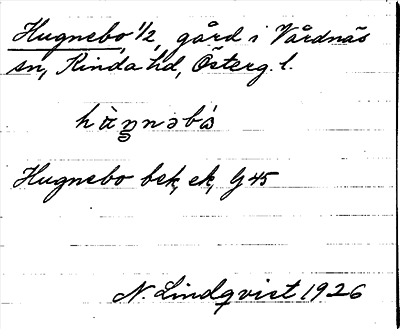 Hugnebo 1/2, gård i Vårdnäs
sn, Kinda hd, Österg. l.
Hugnebo bek, ek, G 45
N. Lindqvist 1926